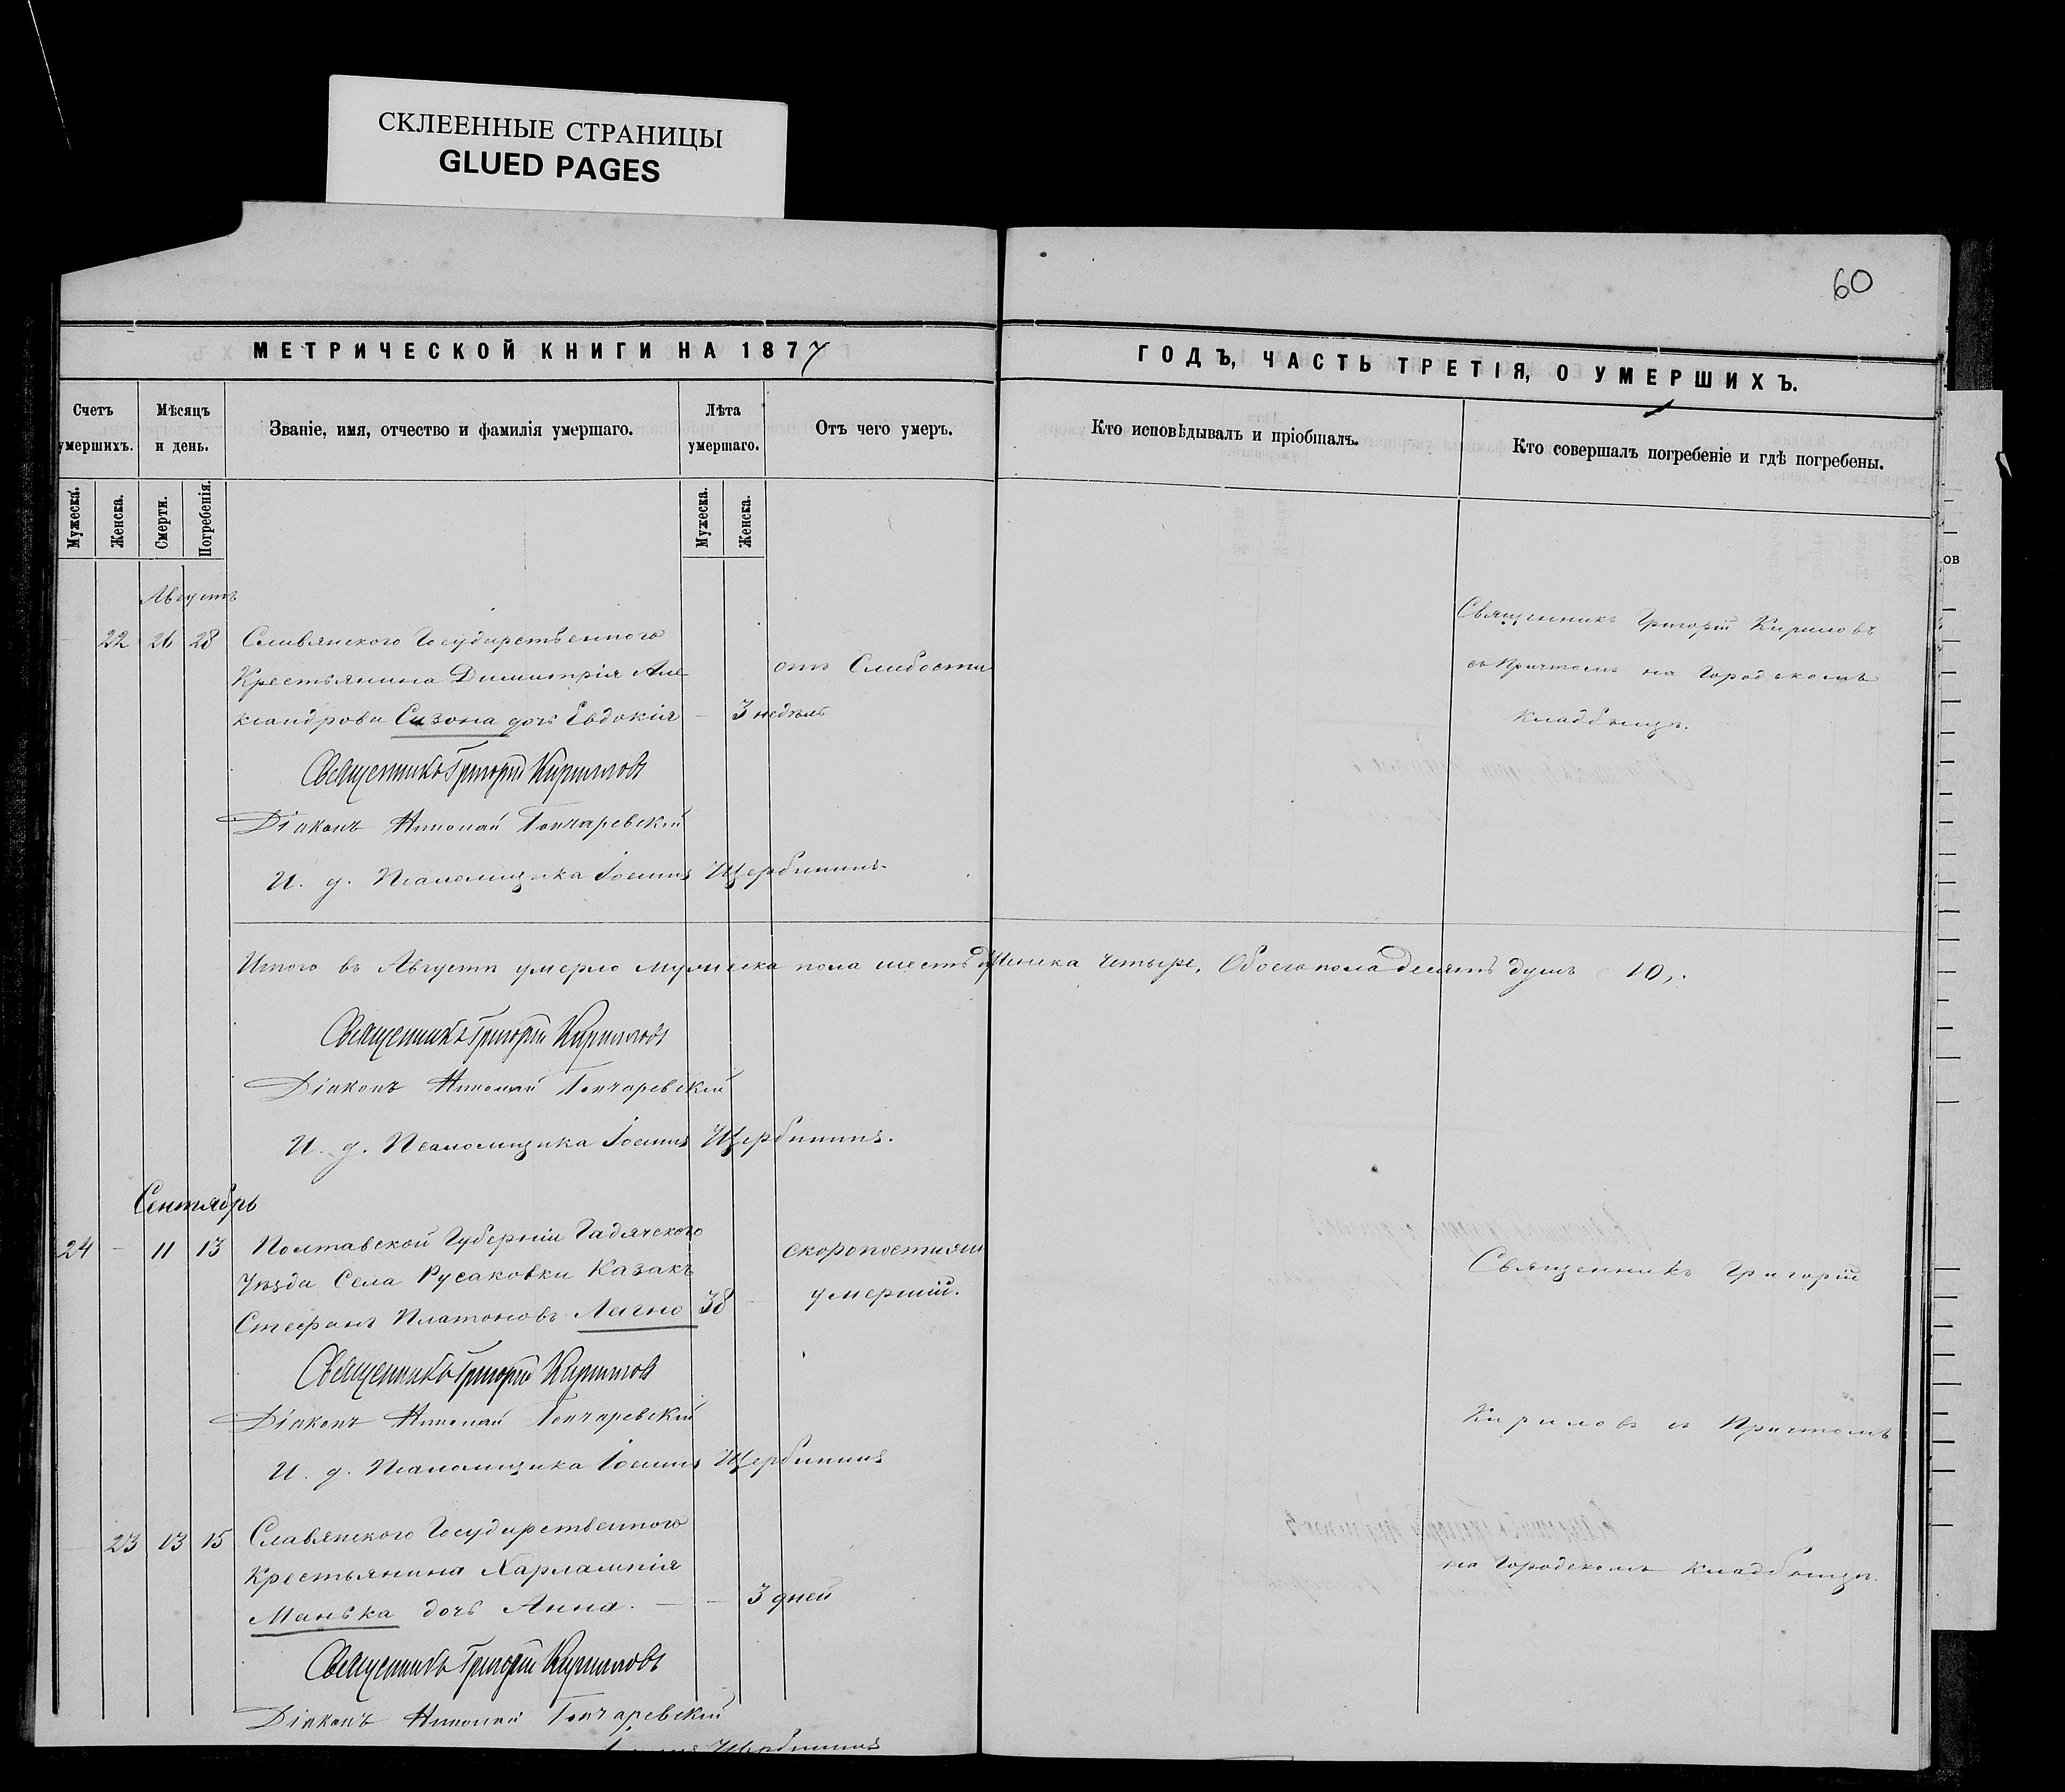 СКЛЕЕННЫЕ СТРАНИЦЫ
GLUED PAGES
60
МЕТРИЧЕСКОЙ КНИГИ НА 1877
ГОДЪ, ЧАСТЬ ТРЕТІЯ, О УМЕРШИХЪ.
Счетъ умершихъ.
Мѣсяцъ и день.
Званіе, имя, отчество и фамилія умершаго.
Лѣта умершаго.
Отъ чего умеръ.
Кто исповѣдывалъ и пріобщалъ.
Кто совершалъ погребеніе и гдѣ погребены.
Мужеска.
Женска.
Смерти.
Погребенія.
Мужеска.
Женска.
Августъ
22 26 28 Славянского Государственного
Крестьянина Димитрія Але
ксандрова Сизона дочь Евдокія – 3 недѣль
отъ Слабости
Священникъ Григорій Кириловъ
съ Причтомъ на Городскомъ
Кладбищѣ.
Священникъ Григорій Кириловъ
Діаконъ Николай Гончаревскій
И. д. Псаломщика Іоаннъ Щербининъ.
Итого въ Августѣ умерло мужеска пола шесть Женска четыре, Обоего пола десять душъ 10,.
Священникъ Григорій Кириловъ
Діаконъ Николай Гончаревскій
И. д. Псаломщика Іоаннъ Щербининъ.
Сентябрь
24 – 11 13 Полтавской Губерніи Гадячского
Уѣзда Села Русаковки Казакъ
Стефанъ Платоновъ Лагно 38 –
скоропостижно
умершій.
Священникъ Григорій
Священникъ Григорій Кириловъ
Діаконъ Николай Гончаревскій
И. д. Псаломщика Іоаннъ Щербининъ
Кириловъ съ Причтомъ
23 13 15 Славянского Государственного
Крестьянина Харлампія
Манька дочь Анна. – – 3 дней
на Городскомъ Кладбищѣ.
Священникъ Григорій Кириловъ
Діаконъ Николай Гончаревскій
Щербининъ
ов